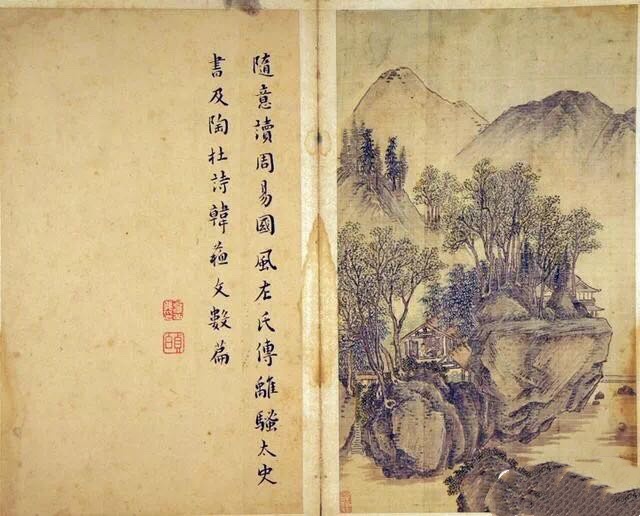 隨意讀周易國風左氏傳離騷太史
書及陶杜詩韓蘓文數篇